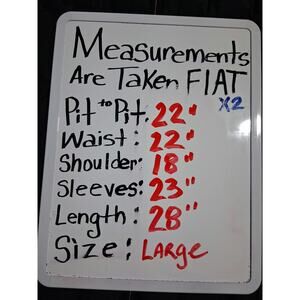 Measurements
Are Taken FlAT
Pit to Pit. 22" X2
Waist: 22"
Shoulder: 18"
Sleeves: 23"
Length: 28"
Size: LARge